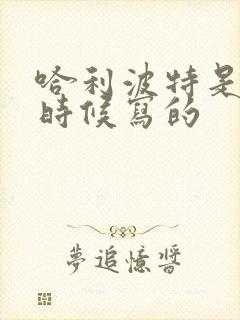 哈利波特是
時候寫的
夢追憶醬